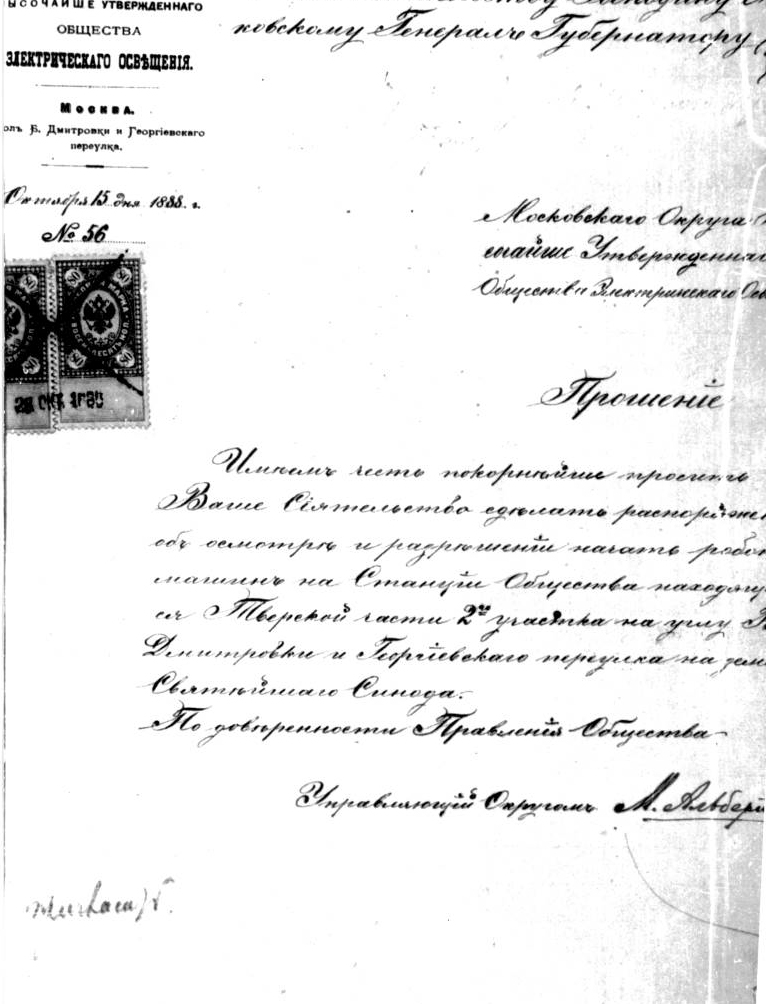 ЫСОЧАЙШЕ УТВЕРЖДЕННАГО
ОБЩЕСТВА
ЭЛЕКТРИЧЕСКАГО ОСВѢЩЕНІЯ.
МОСКВА.
Б. Дмитровки и Георгіевскаго
переулка.
Октября 15 дня 1888. г.
№ 56
ковскому Генералъ Губернатору
Московскаго Округа
сочайше Утвержденнаго
Общества Электрическаго
Прошеніе
Имѣемъ честь покорнѣйше просить
Ваше Сіятельство сдѣлать
объ осмотрѣ и разрѣшеніи начать
машинъ на Станціи Общества
ся Тверской части 2го участка на углу
Дмитровки и Георгіевскаго переулка на
Святѣйшаго Синода.
По довѣренности Правленія Общества
Управляющій Округомъ М.
80 80
80 80
ВОСЕМЬДЕСЯТЪ КОП.